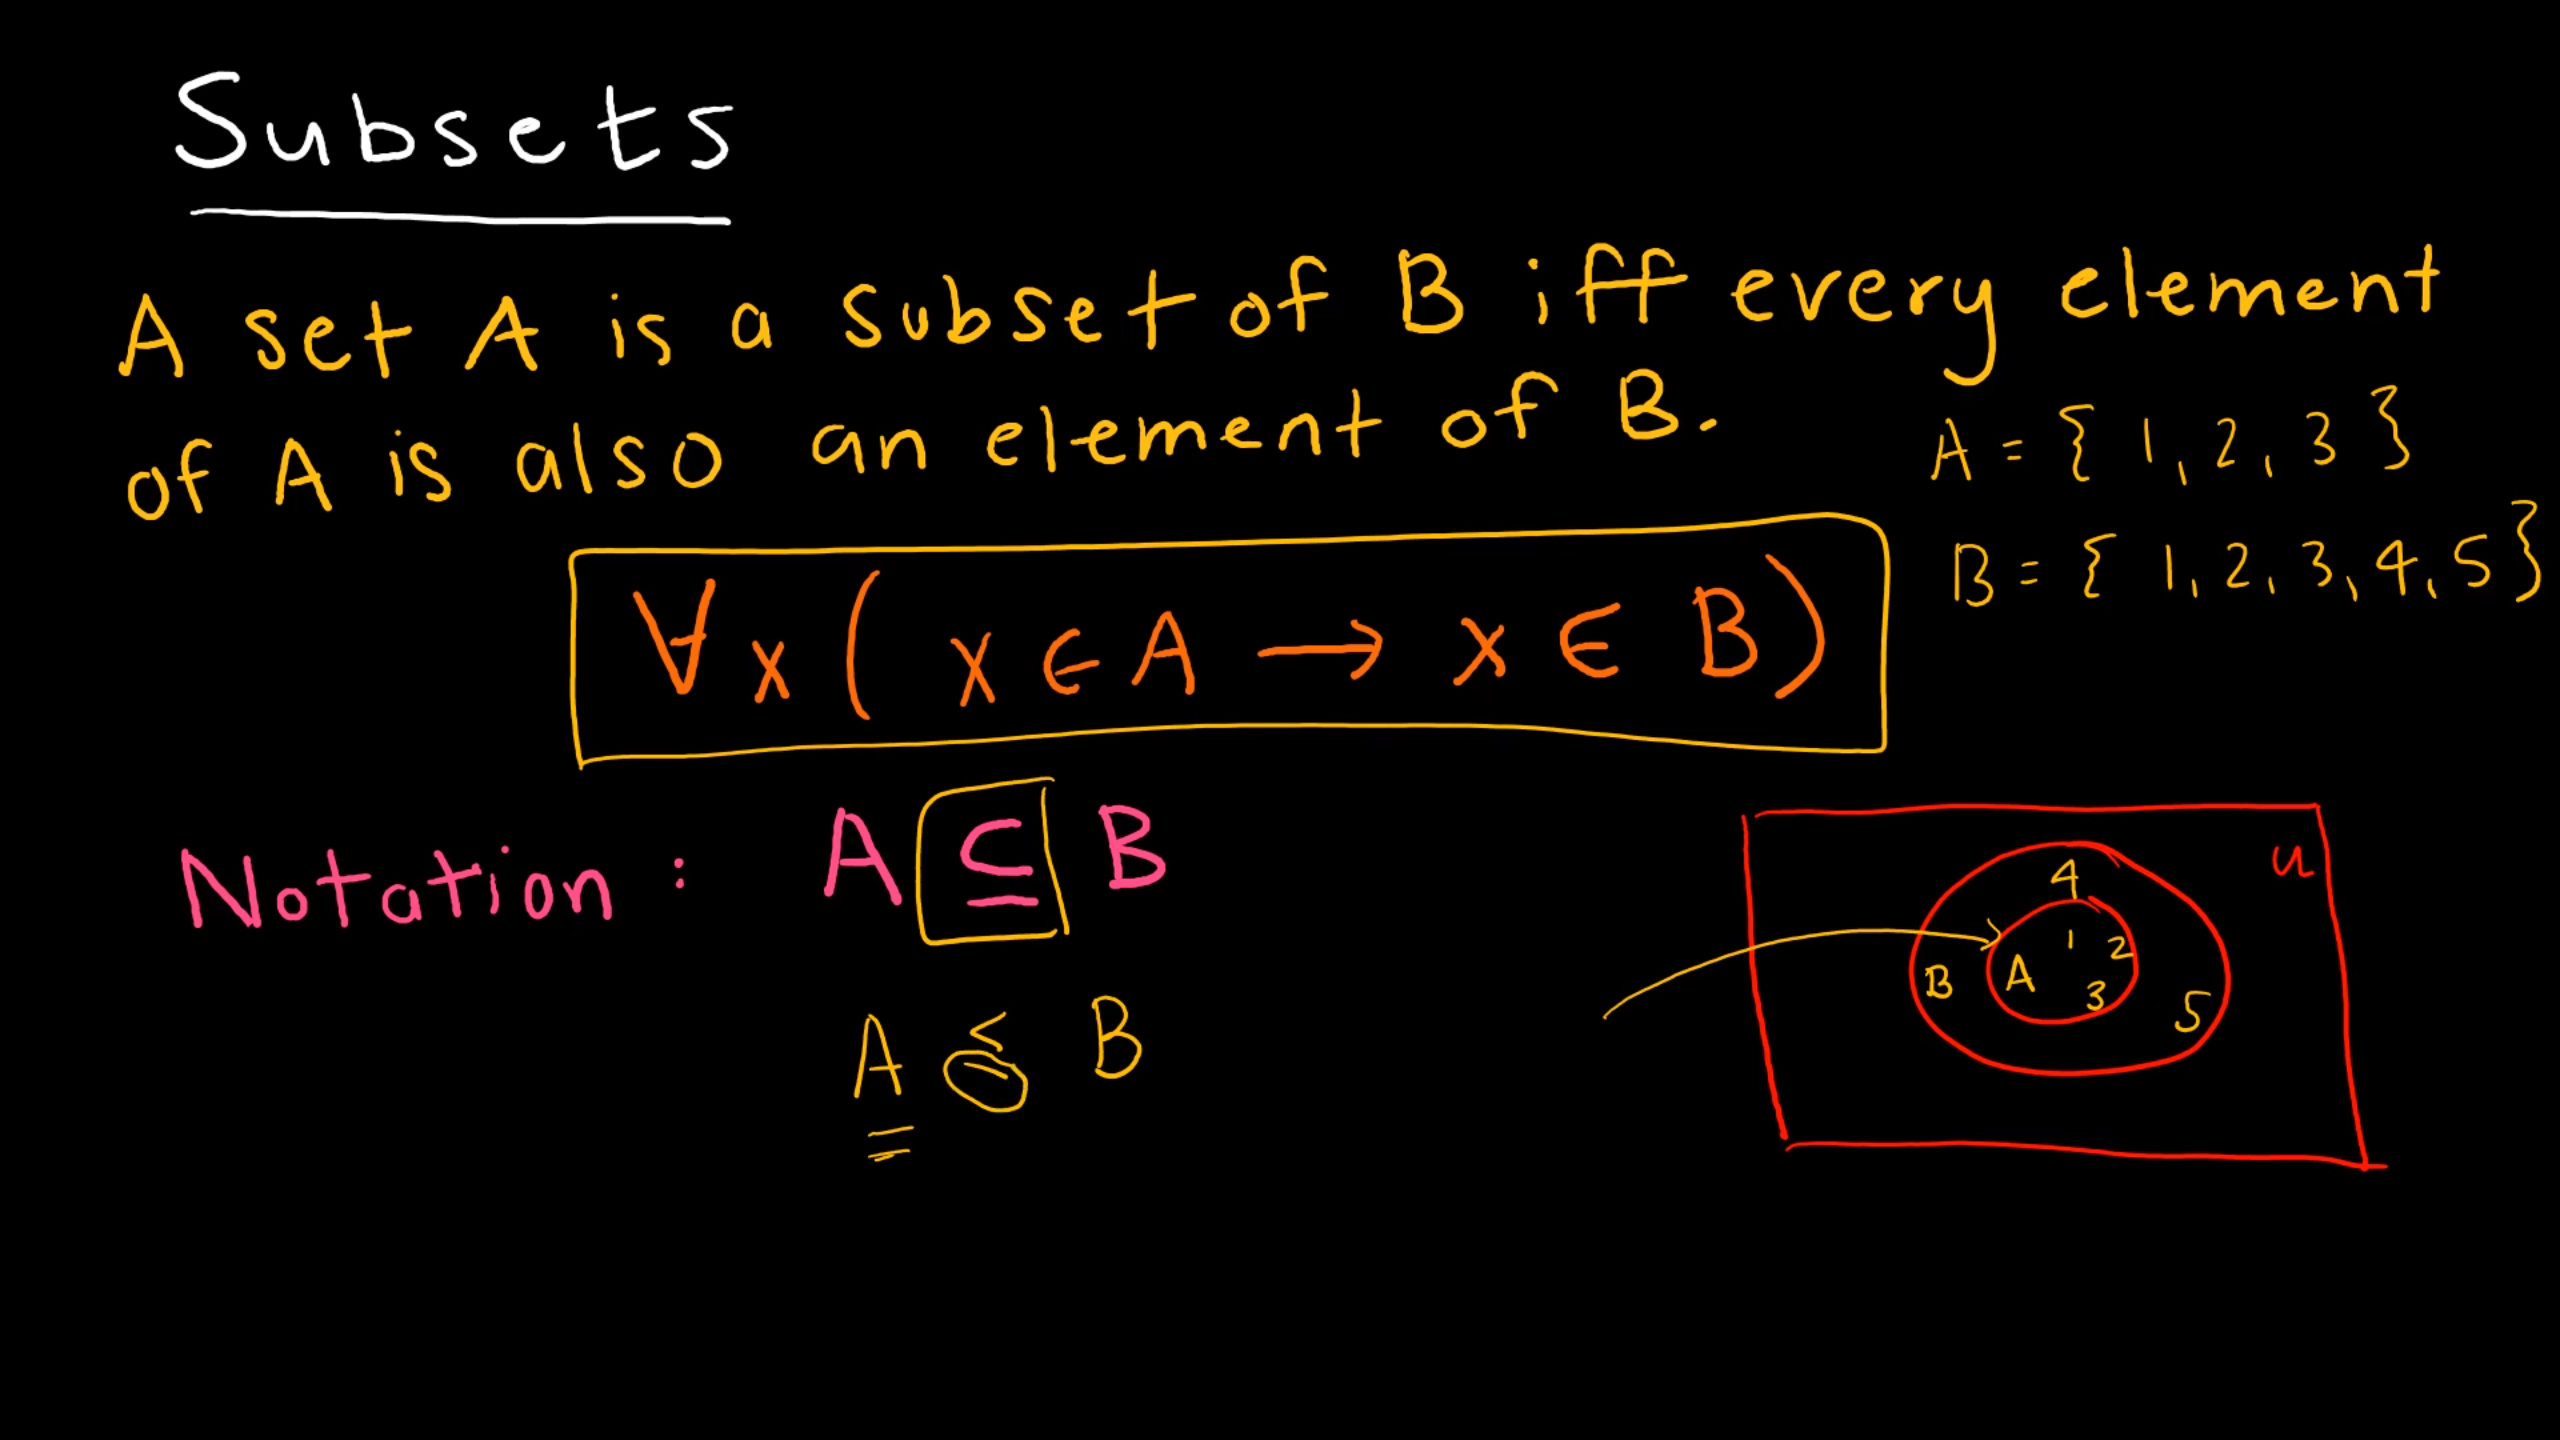 Subsets
A set A is a subset of B iff every element
of A is also an element of B.
A = { 1, 2, 3 }
B = { 1, 2, 3, 4, 5 }
∀x ( x ∈ A → x ∈ B )
Notation : A ⊆ B
A ≤ B
U
4
1 2
B A 3 5